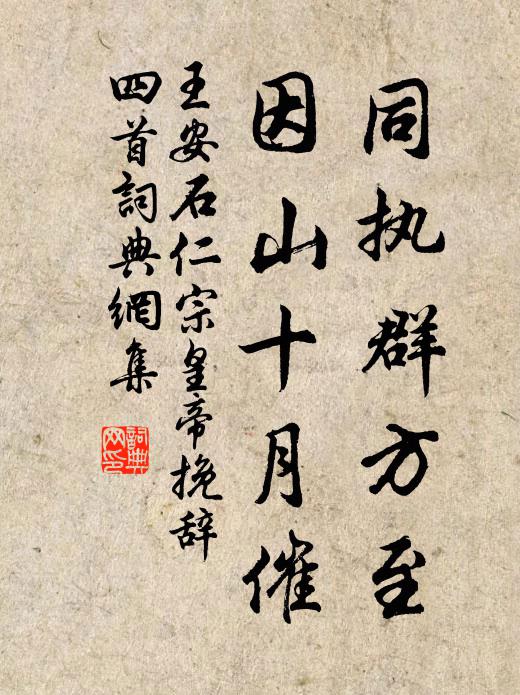 同执群方至
因山十月催
王安石仁宗皇帝挽辞
四首詞典網集
詞典
网印